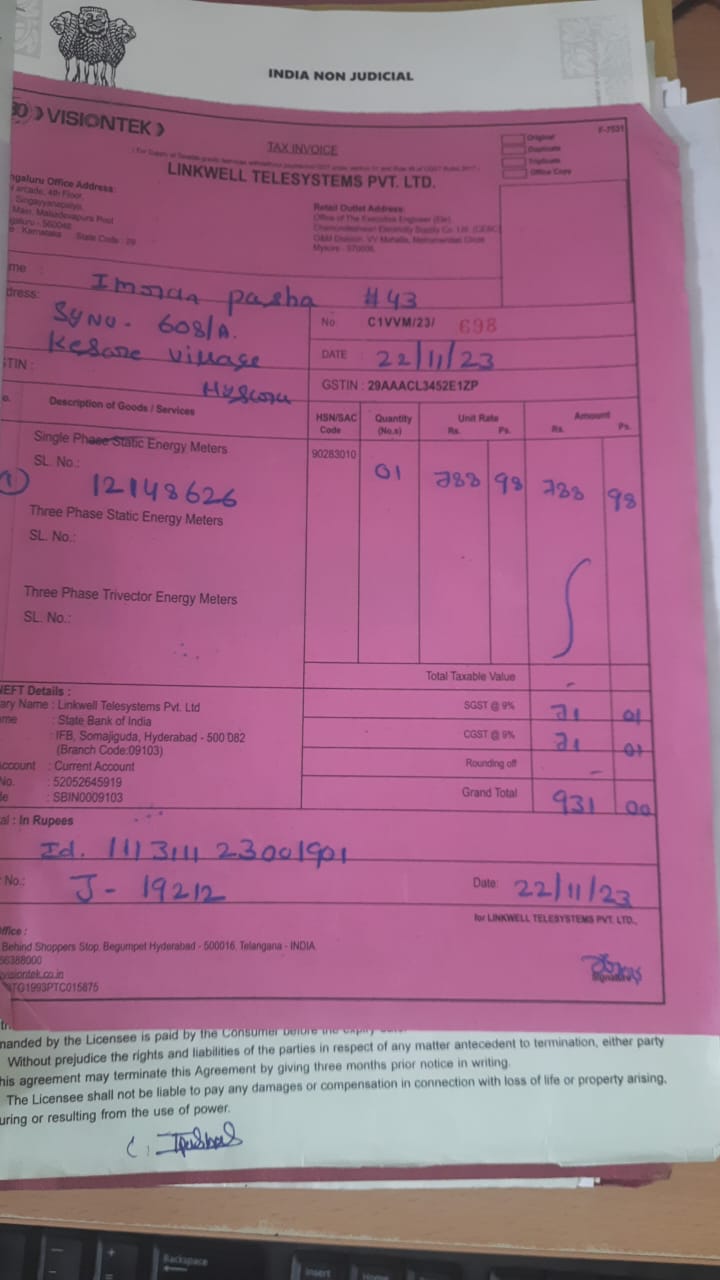 INDIA NON JUDICIAL
VISIONTEK
F-7531
TAX INVOICE
Original
Duplicate
Triplicate
Office Copy
LINKWELL TELESYSTEMS PVT. LTD.
ngaluru Office Address:
arcade, 4th Floor,
Singayyanapalya,
Main, Mahadevapura Post
galuru - 560048
: Karnataka State Code : 29
Retail Outlet Address:
Office of The Executive Engineer (Ele)
Chamundeshwari Electricity Supply Co. Ltd. (CESC)
O&M Division, VV Mohalla,
Mysore - 570006.
me : Imorda pasha #43
dress: SyNo - 608/A.
Kesare village
Mysoru
STIN :
No C1VVM/23/ 698
DATE : 22/11/23
GSTIN : 29AAACL3452E1ZP
o. Description of Goods / Services HSN/SAC Code Quantity (No.s) Unit Rate Rs. Ps. Amount Rs. Ps.
Single Phase Static Energy Meters 90283010
SL. No.: 01 788 98 788 98
1 12148626
Three Phase Static Energy Meters
SL. No.:
Three Phase Trivector Energy Meters
SL. No.:
Total Taxable Value -
NEFT Details :
ary Name : Linkwell Telesystems Pvt. Ltd
SGST @ 9% 71 01
me : State Bank of India
: IFB, Somajiguda, Hyderabad - 500 082
CGST @ 9% 71 01
(Branch Code:09103)
ccount : Current Account
Rounding off -
No. : 52052645919
de : SBIN0009103
Grand Total 931 00
al : In Rupees
Id. 1113111 23001901
No.: J - 19212
Date: 22/11/23
for LINKWELL TELESYSTEMS PVT. LTD.,
ffice :
Behind Shoppers Stop, Begumpet Hyderabad - 500016. Telangana - INDIA
66388000
visiontek.co.in
TG1993PTC015875
Signature
manded by the Licensee is paid by the Consumer before the expiry
Without prejudice the rights and liabilities of the parties in respect of any matter antecedent to termination, either party
his agreement may terminate this Agreement by giving three months prior notice in writing.
The Licensee shall not be liable to pay any damages or compensation in connection with loss of life or property arising,
uring or resulting from the use of power.
Backspace
Insert
Home